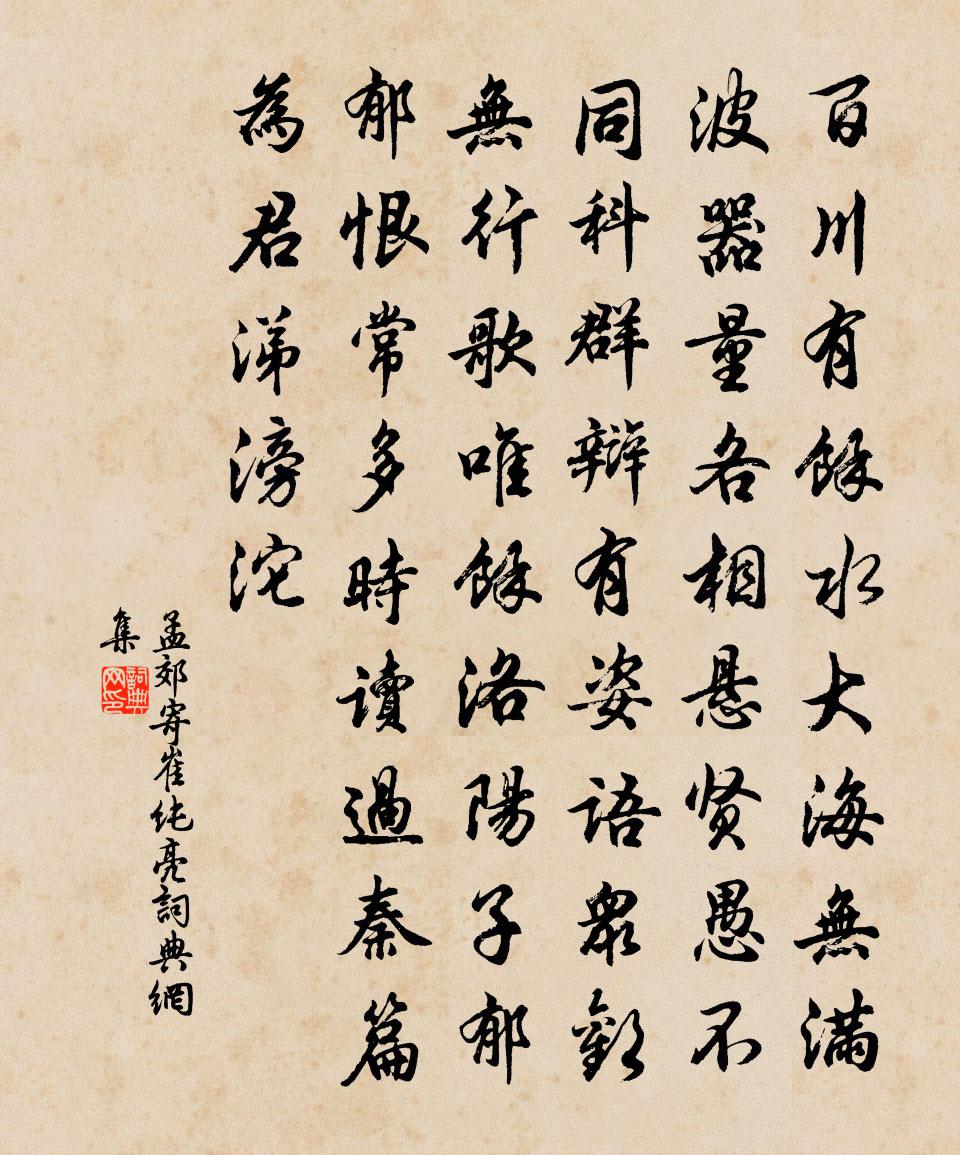 百川有餘水大海無滿
波器量各相悬贤愚不
同科群辯有姿語眾歡
無行歌唯餘洛陽子郁
郁恨常多時讀過秦篇
為君涕滂沱
孟郊寄崔純亮詞典網
集
詞典网印